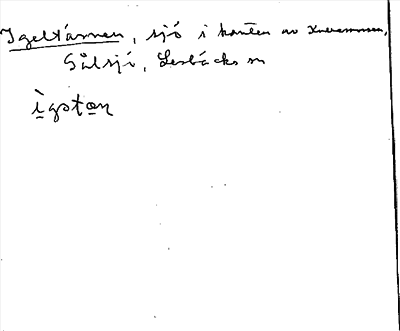 Igeltärnen, sjö i kanten av
Gålsjö, Lesbäcks sn
ìgstan